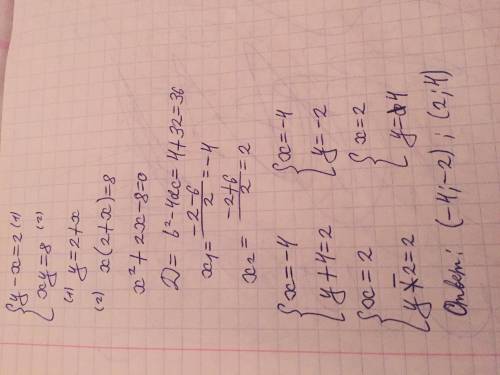 {y-x=2 (1)
{xy=8 (2)
(1) y=2+x
(2) x(2+x)=8
x²+2x-8=0
D= b²-4ac=4+32=36
x₁= (-2-6)/2 =-4
x₂= (-2+6)/2 =2
{x=-4 {x=-4
{y+4=2 {y=-2
{x=2 {x=2
{y-2=2 {y=4
Ответ: (-4;-2) ; (2;4)